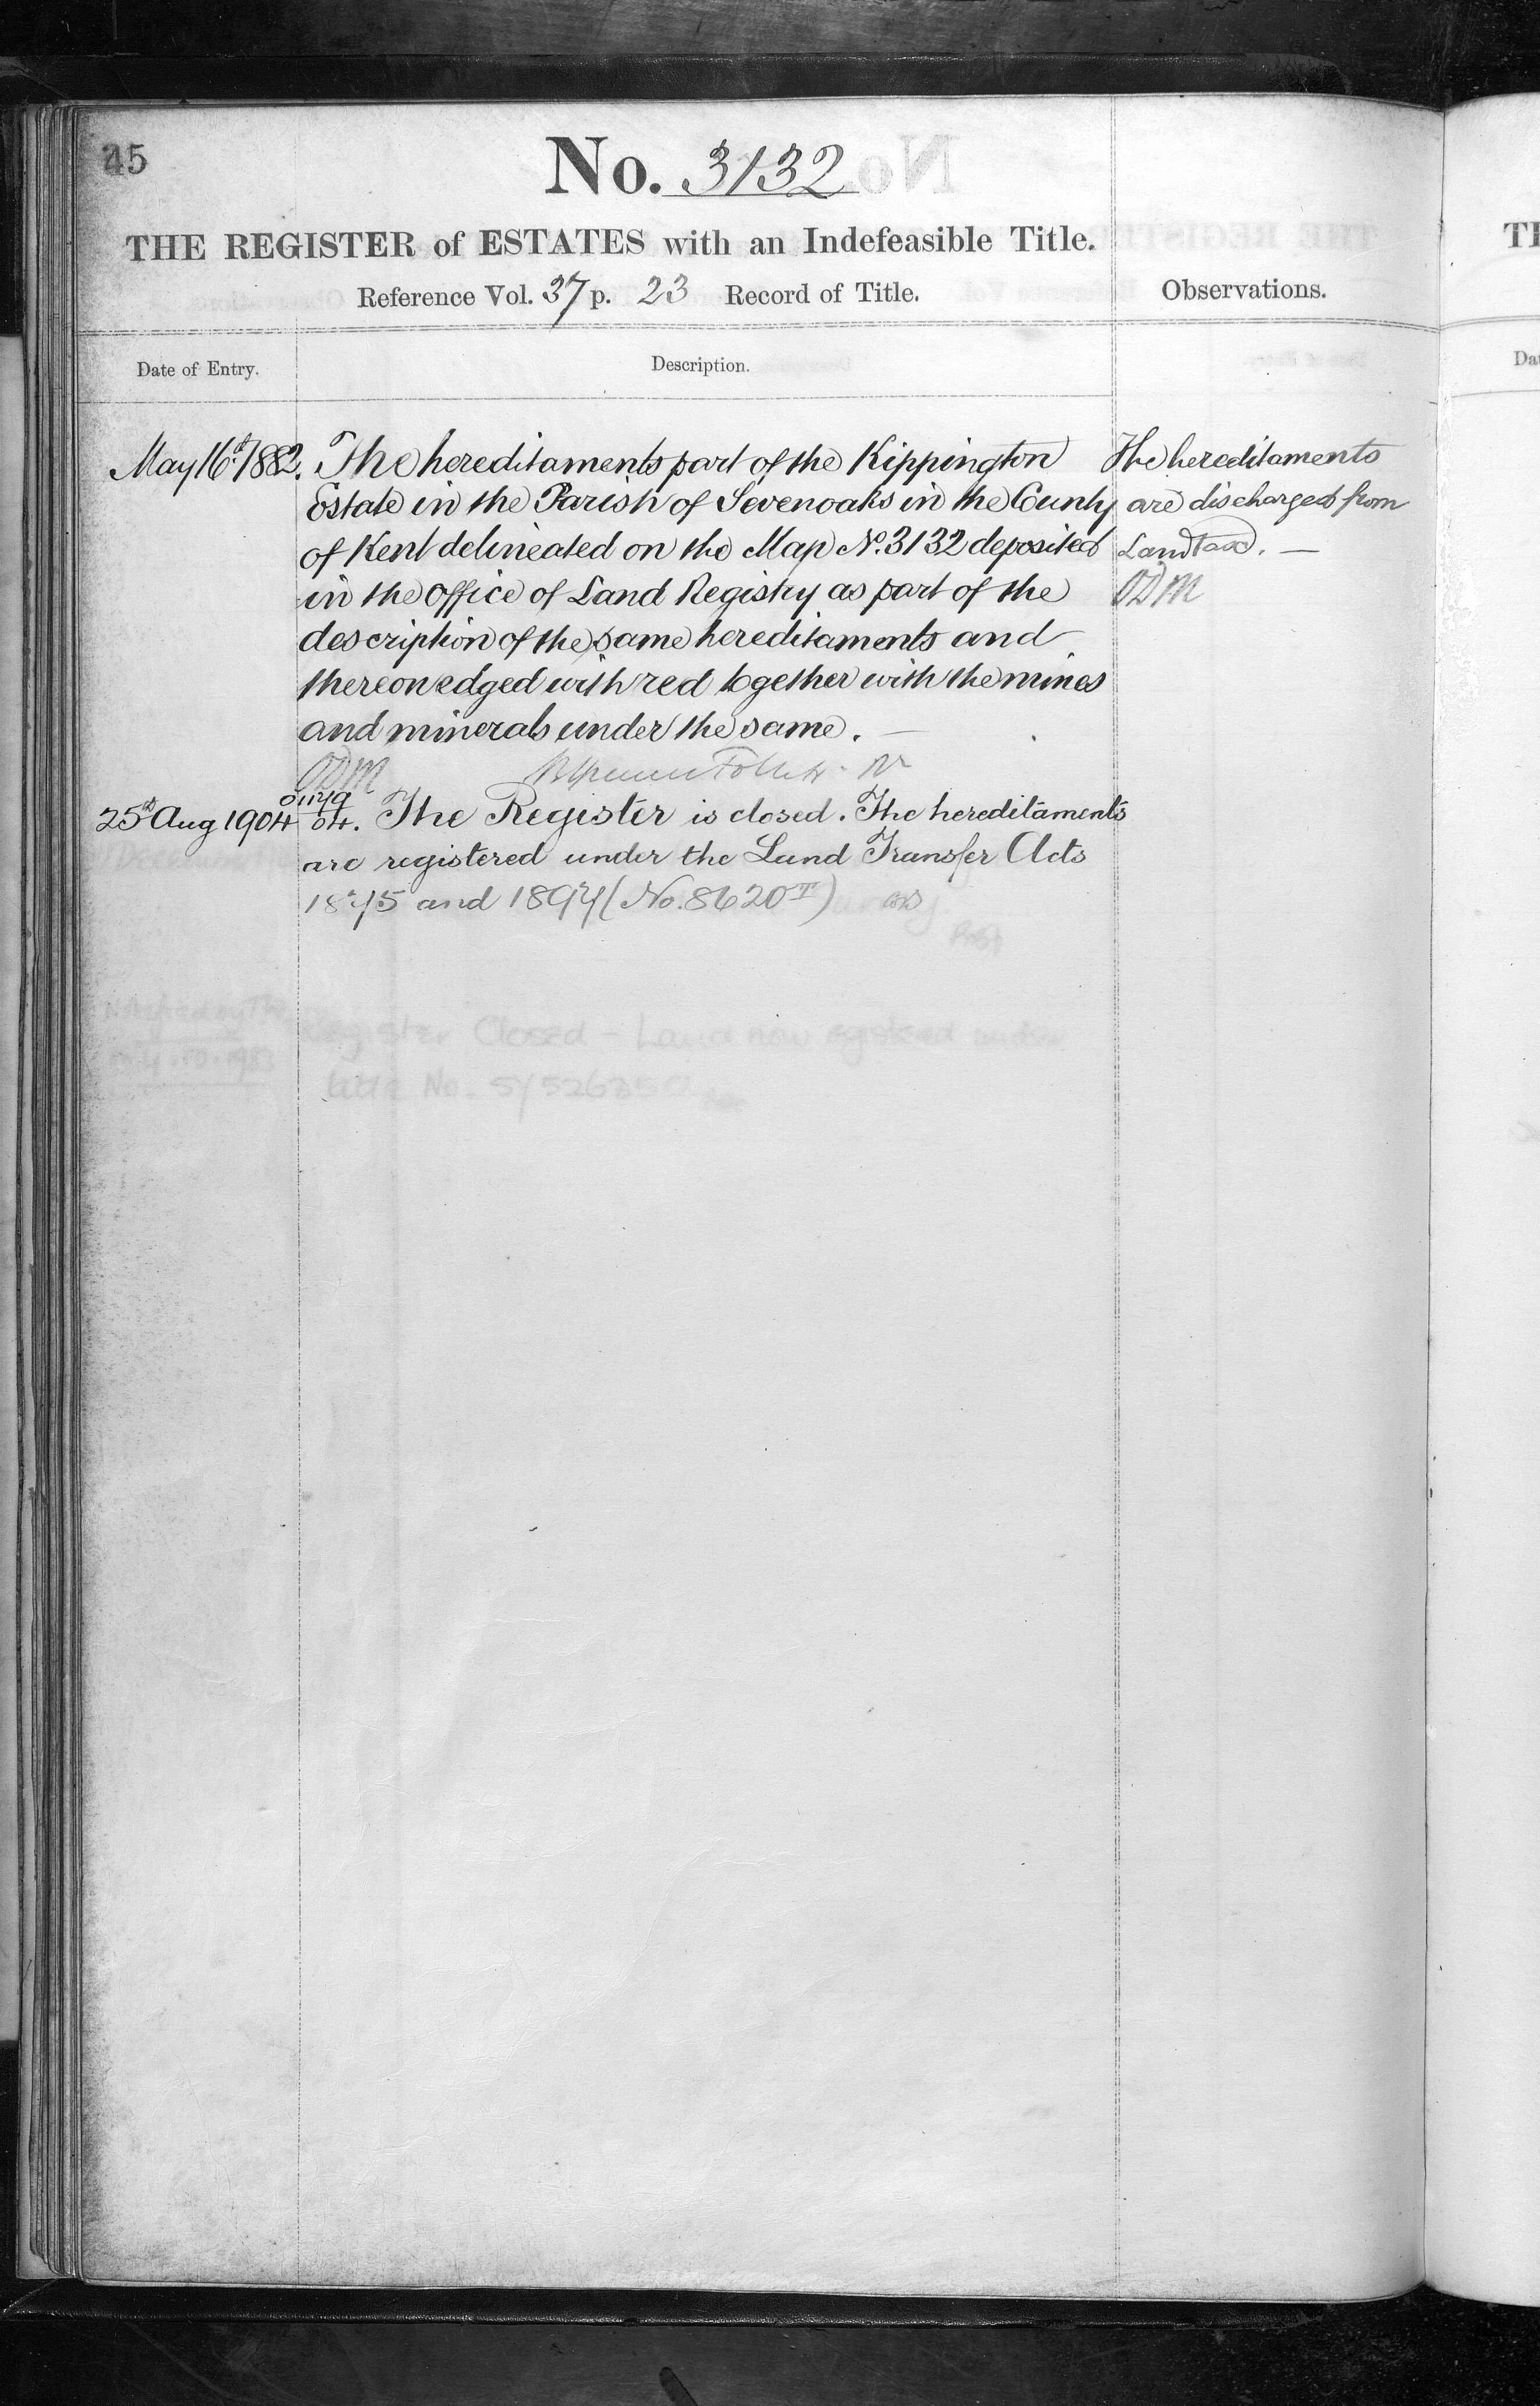 45
No. 3132
THE REGISTER of ESTATES with an Indefeasible Title.
Reference Vol. 37 p. 23 Record of Title.
Observations.
Date of Entry.
Description.
May 16th 1882. The hereditaments part of the Kippington
Estate in the Parish of Sevenoaks in the County
of Kent delineated on the Map No. 3132 deposited
in the office of Land Registry as part of the
description of the same hereditaments and
thereon edged with red together with the mines
and minerals under the same. —
ODM
The hereditaments
are discharged from
Land tax. —
ODM
25th Aug 1904 The Register is closed. The hereditaments
are registered under the Land Transfer Acts
1875 and 1897 (No. 8620 T)
Register Closed - Land now registered under
title No.